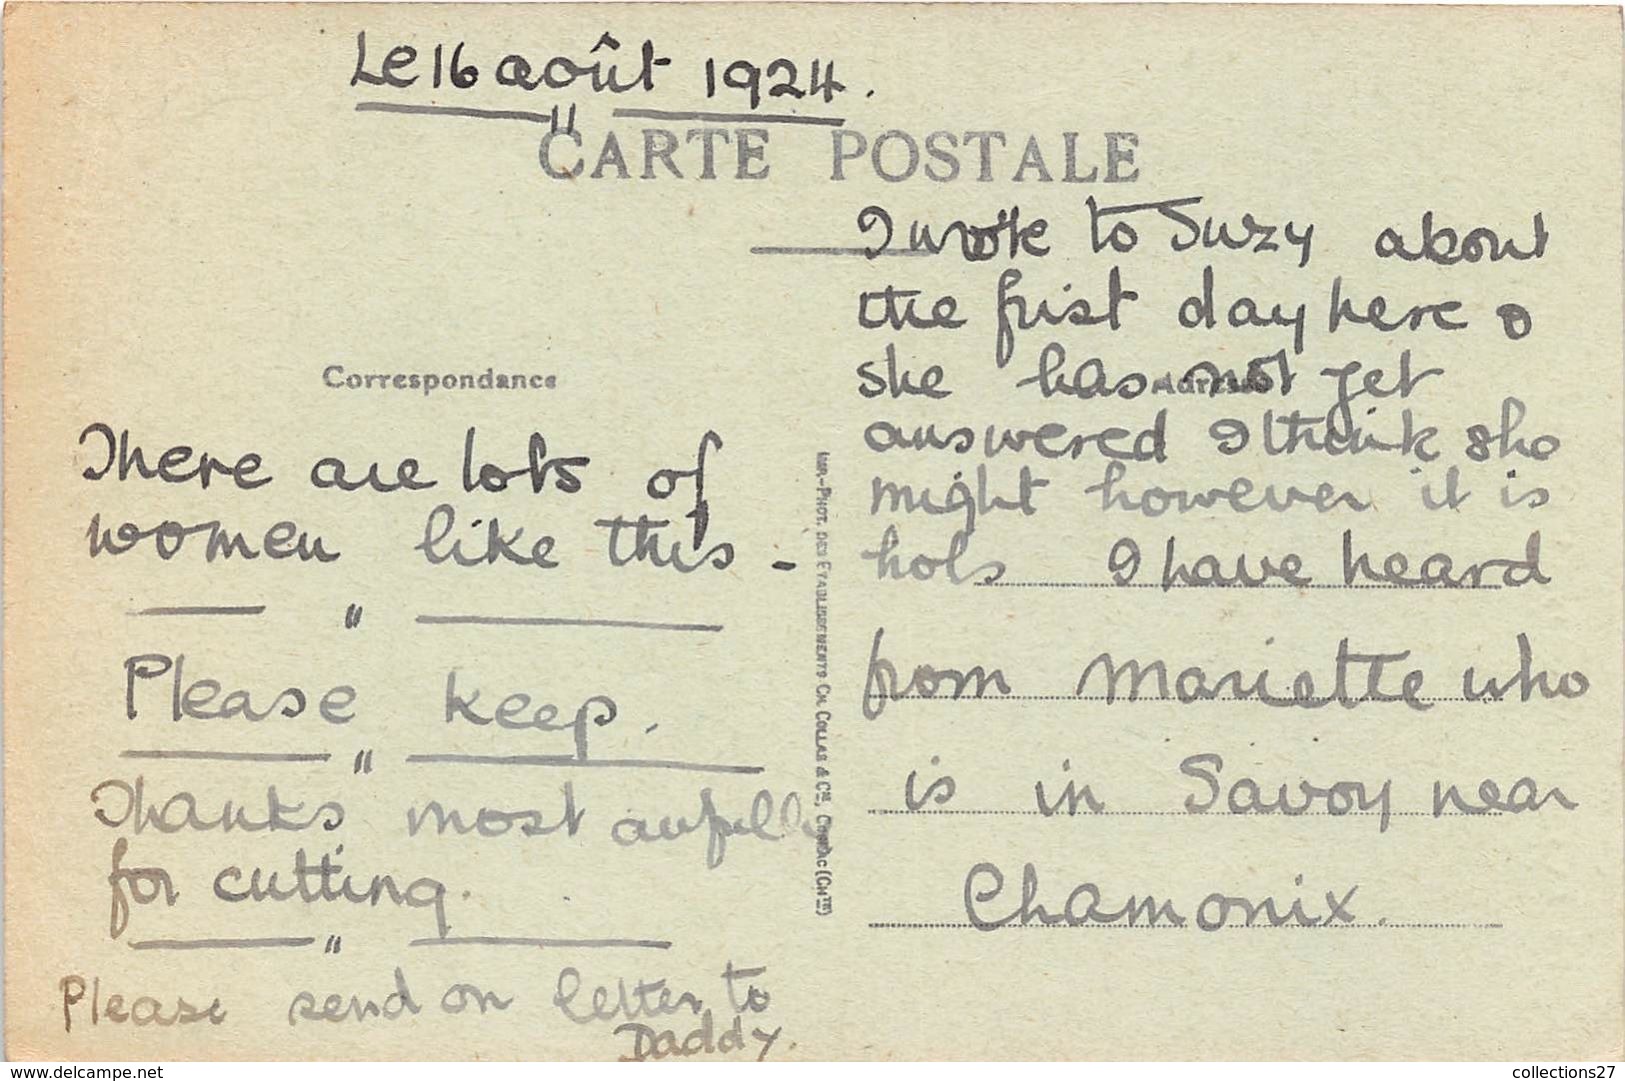 Le 16 août 1924.
CARTE POSTALE
Correspondance
There are lots of
women like this -
Please keep.
Thanks most awfully
for cutting.
Please send on letter to
Daddy.
IMP.-PHOT. DES ETABLISSEMENTS CH. COLLAS & Cie, COGNAC (Chte)
I wrote to Suzy about
the first day here &
she has not yet
Adresse
answered I think she
might however it is
hols I have heard
from Mariette who
is in Savoy near
Chamonix.
collections27